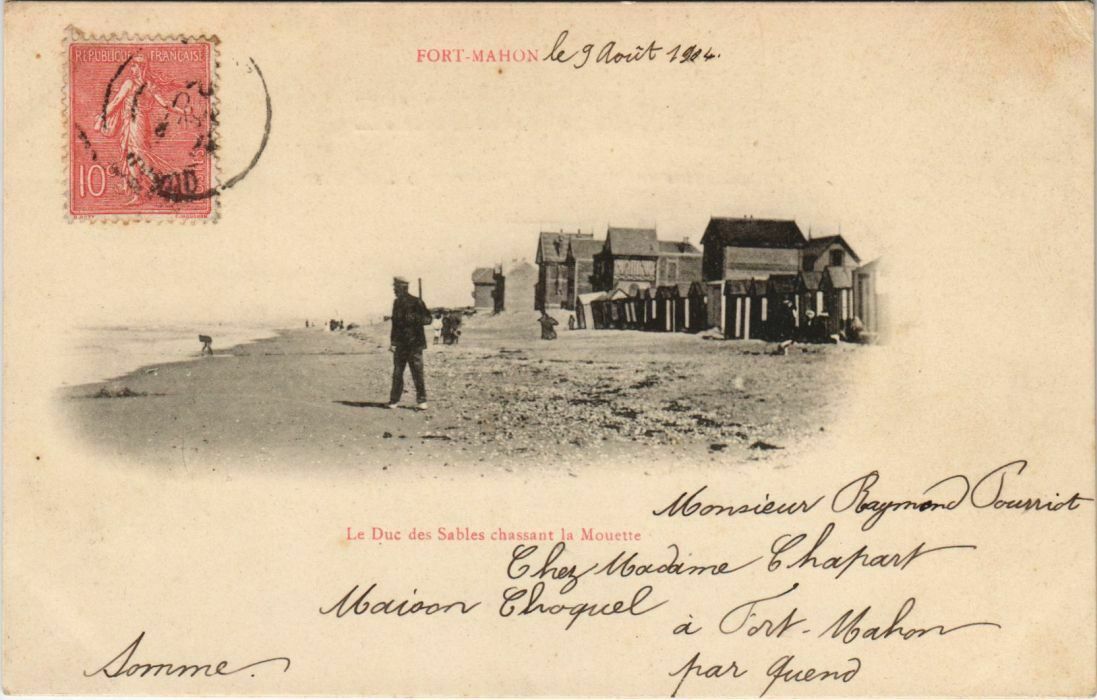 RÉPUBLIQUE FRANÇAISE
10c
FORT-MAHON le 9 Août 1904.
Le Duc des Sables chassant la Mouette
Monsieur Raymond Pourriot
Chez Madame Chapart
Maison Choquel
à Fort-Mahon
par Quend
Somme.